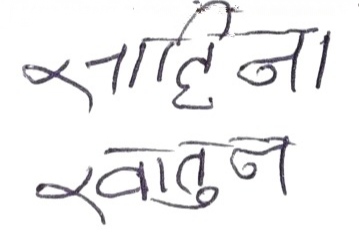 साहिना
खातुन